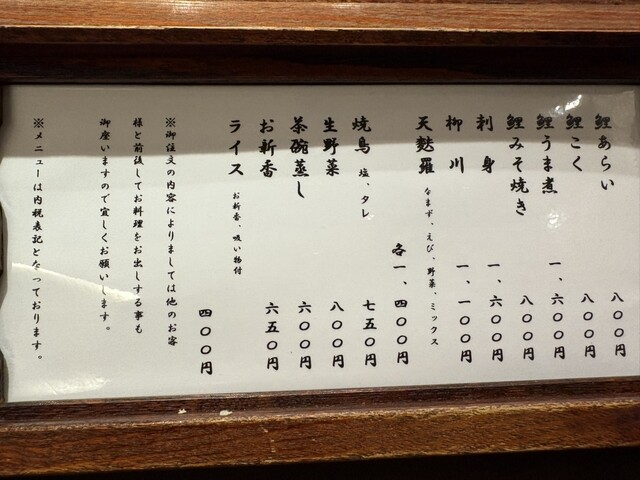 鯉あらい 八〇〇円
鯉こく 八〇〇円
鯉うま煮 一、六〇〇円
鯉みそ焼き 八〇〇円
刺身 一、六〇〇円
柳川 一、一〇〇円
天麩羅 なまず、えび、野菜、ミックス
各一、四〇〇円
焼鳥 塩、タレ 七五〇円
生野菜 八〇〇円
茶碗蒸し 六〇〇円
お新香 六五〇円
ライス お新香、吸い物付
四〇〇円
※御注文の内容によりましては他のお客
様と前後してお料理をお出しする事も
御座いますので宜しくお願いします。
※メニューは内税表記となっております。